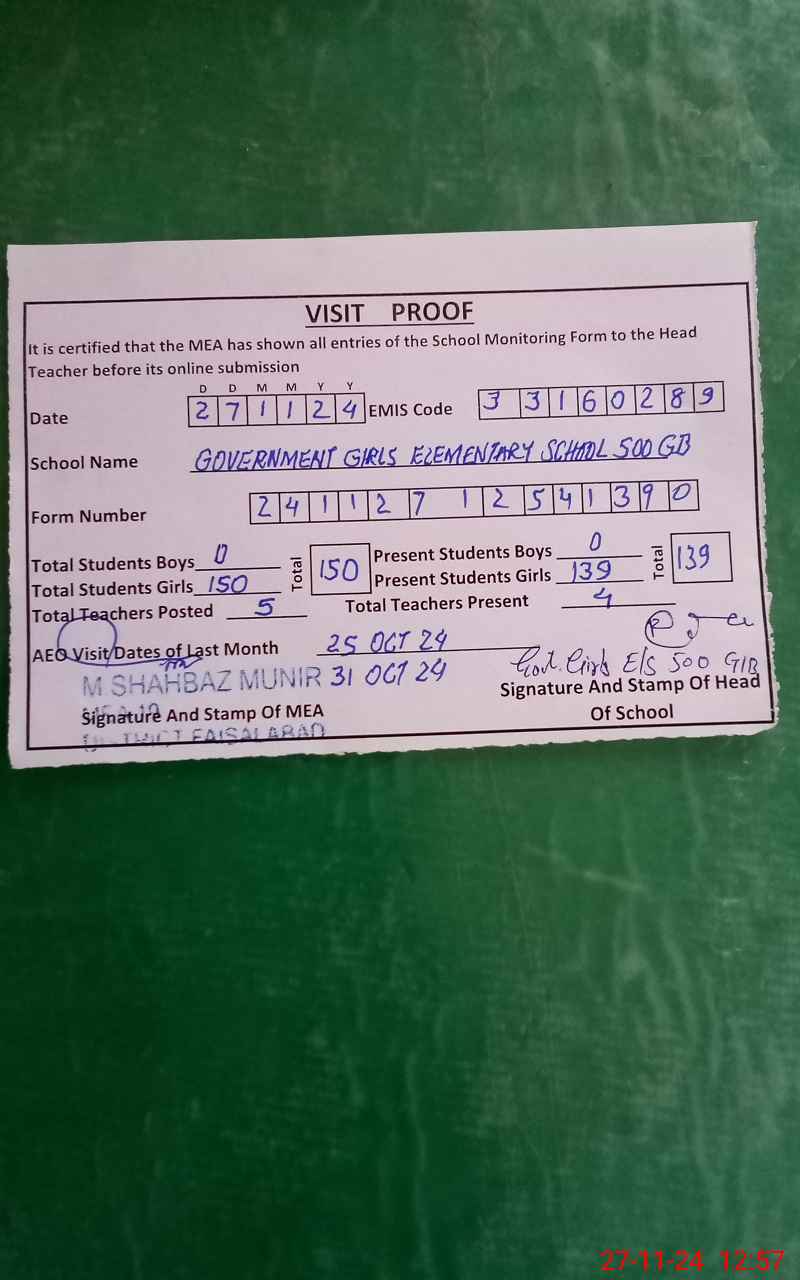 VISIT PROOF
It is certified that the MEA has shown all entries of the School Monitoring Form to the Head
Teacher before its online submission
D D M M Y Y
Date 2 7 1 1 2 4 EMIS Code 3 3 1 6 0 2 8 9
School Name GOVERNMENT GIRLS ELEMENTARY SCHOOL 500 GB
Form Number 2 4 1 1 2 7 1 2 5 4 1 3 9 0
Total Students Boys 0 Total 150 Present Students Boys 0 Total 139
Total Students Girls 150 Present Students Girls 139
Total Teachers Posted 5 Total Teachers Present 4
AEO Visit Dates of Last Month 25 OCT 24
M SHAHBAZ MUNIR 31 OCT 24 Govt. Girls E/S 500 G/B
Signature And Stamp Of MEA Signature And Stamp Of Head
Of School
DISTRICT FAISALABAD
27-11-24 12:57